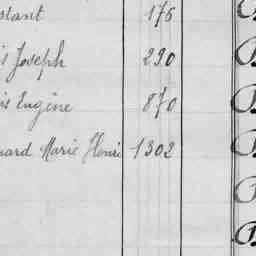 stant 176
is Joseph 290
is Eugène 870
nard Marie Henri 1302